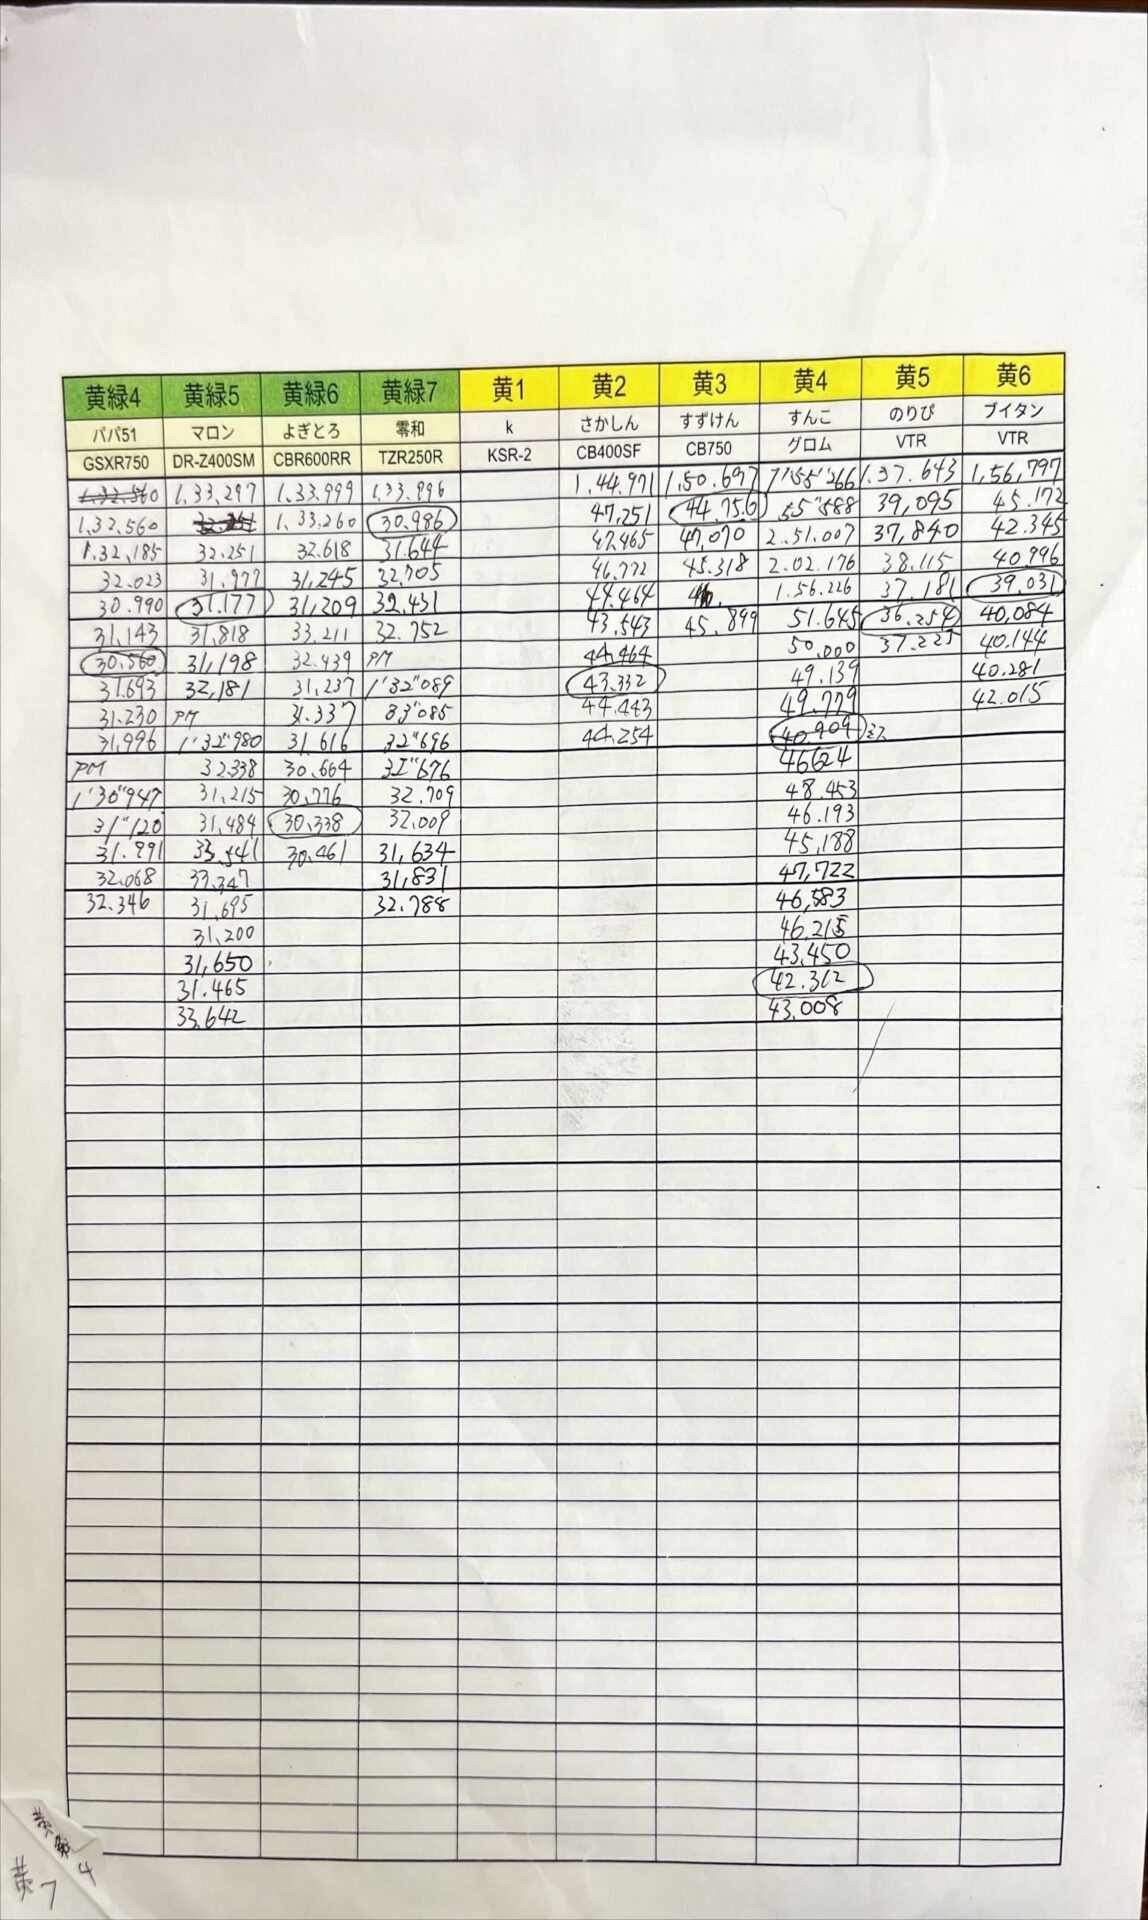 黄緑4 黄緑5 黄緑6 黄緑7 黄1 黄2 黄3 黄4 黄5 黄6
パパ51 マロン よぎとろ 零和 k さかしん すずけん すんこ のりぴ ブイタン
GSXR750 DR-Z400SM CBR600RR TZR250R KSR-2 CB400SF CB750 グロム VTR VTR
1.32.560 1.33.297 1.33.999 1.33.996 1.44.971 1.50.697 1'55"266 1.37.643 1,56,797
1.32.560 1.33.260 30.986 47,251 44.756 55"588 39,095 45.172
1.32,185 32.251 32.618 31.644 47,465 47,070 2.51.007 37,840 42.345
32.023 31.977 31,245 32,705 46.772 45.318 2.02.176 38.115 40.996
30.990 31.177 31,209 32,431 44.464 1.56.226 37.181 39,031
31,143 31,818 33.211 32.752 43,543 45.899 51.645 36.254 40,084
30,560 31,198 32.439 PM 44.464 50,000 37.225 40.144
31.693 32,181 31,237 1'32"089 43.332 49.139 40.281
31.230 PM 31.337 33"085 44.443 49.779 42.015
31,996 1'32"980 31,616 32"696 44,254 40.909 ミス
PM 32.338 30.664 32"676 46.624
1'30"947 31,215 30,776 32.709 48.453
31"120 31,484 30,338 32,009 46.193
31.891 33,541 30,461 31,634 45,188
32.068 33,347 31,831 47,722
32.346 31,695 32.788 46,583
31,200 46,215
31,650 43,450
31.465 42.312
33,642 43,008
黄緑4
黄7